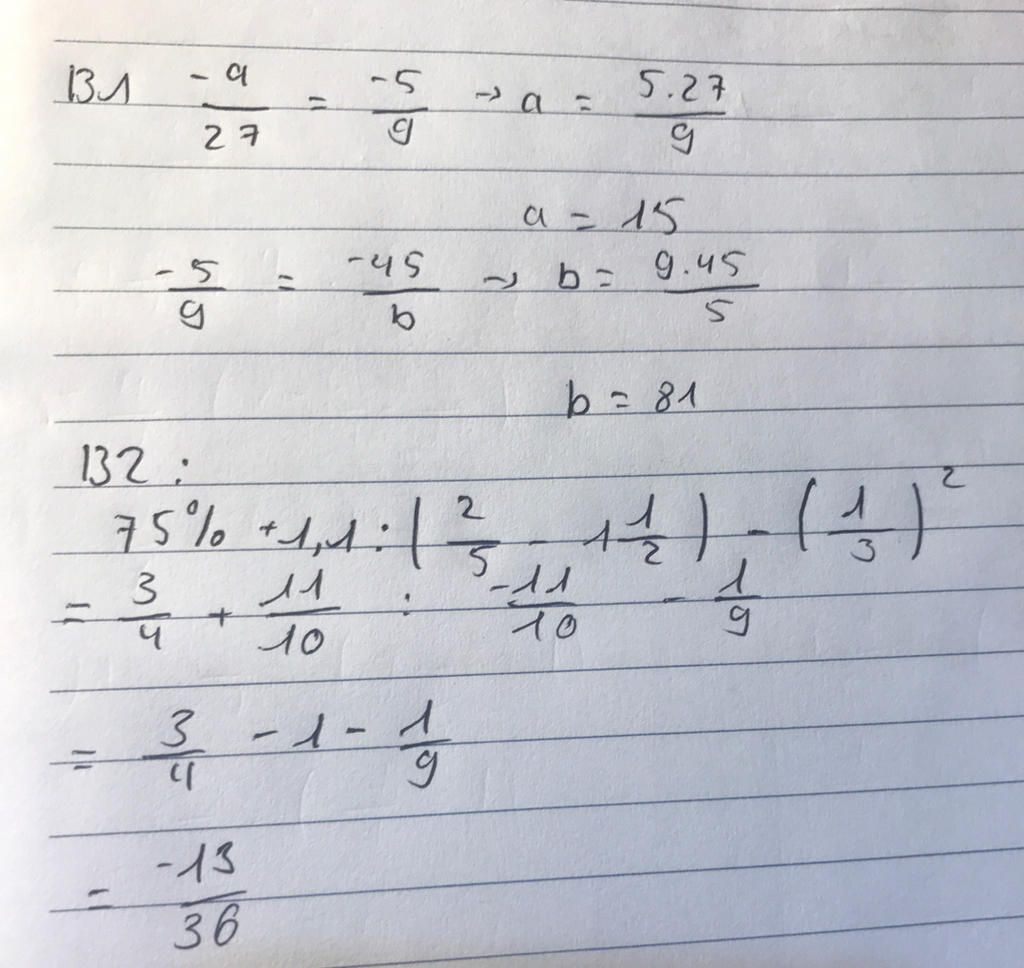 B1 -a/27 = -5/9 → a = 5.27/9
a = 15
-5/9 = -45/b → b = 9.45/5
b = 81
B2 :
75% + 1,1 : (2/5 - 1 1/2) - (1/3)²
= 3/4 + 11/10 : -11/10 - 1/9
= 3/4 - 1 - 1/9
= -13/36